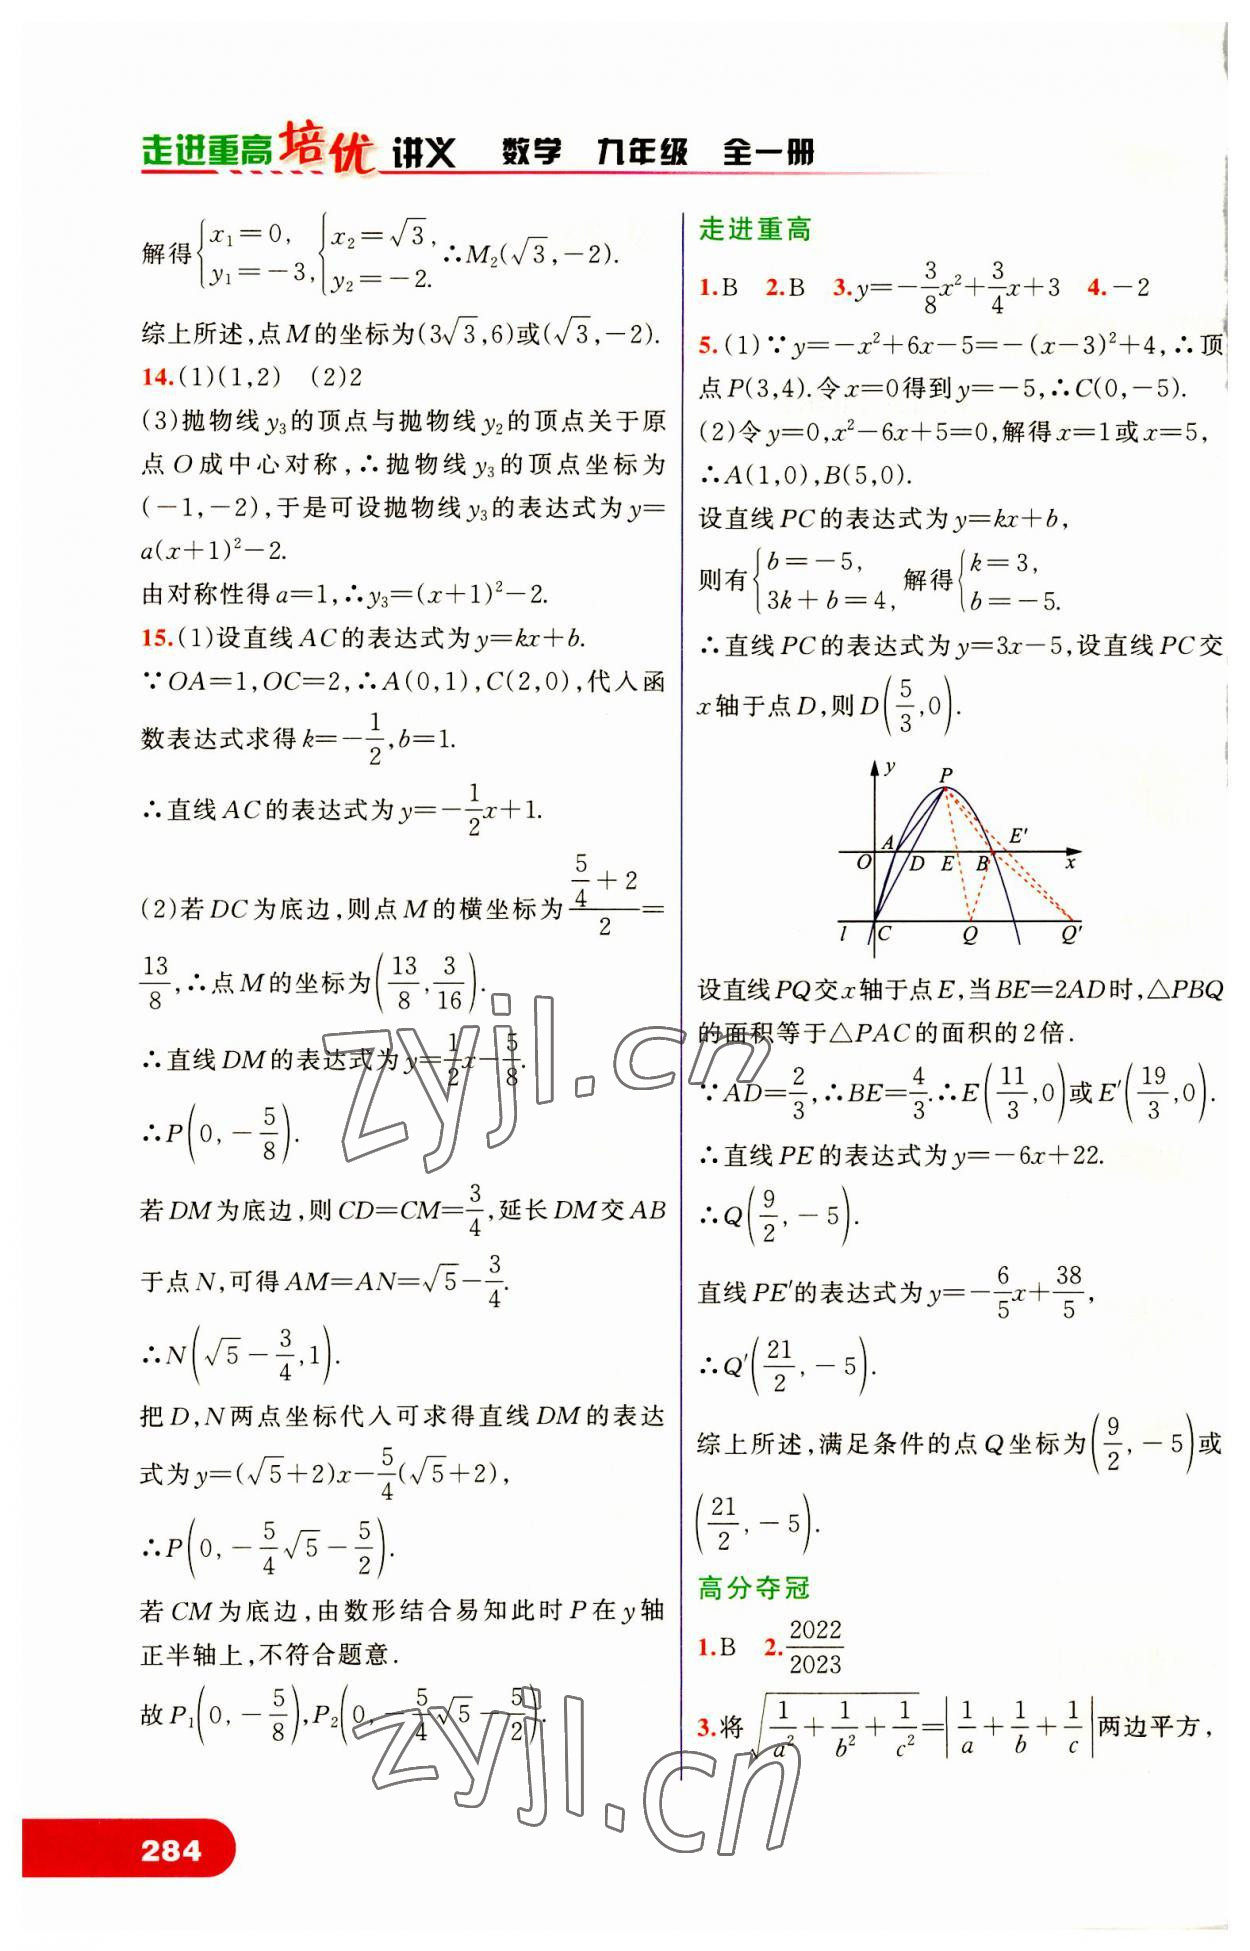 走进重高培优 讲义 数学 九年级 全一册
解得{x₁=0, y₁=-3, {x₂=√3, y₂=-2. ∴M₂(√3,-2).
综上所述,点M的坐标为(3√3,6)或(√3,-2).
14.(1)(1,2) (2)2
(3)抛物线y₃的顶点与抛物线y₂的顶点关于原
点O成中心对称,∴抛物线y₃的顶点坐标为
(-1,-2),于是可设抛物线y₃的表达式为y=
a(x+1)²-2.
由对称性得a=1,∴y₃=(x+1)²-2.
15.(1)设直线AC的表达式为y=kx+b.
∵OA=1,OC=2,∴A(0,1),C(2,0),代入函
数表达式求得k=-1/2,b=1.
∴直线AC的表达式为y=-1/2x+1.
(2)若DC为底边,则点M的横坐标为(5/4+2)/2=
13/8,∴点M的坐标为(13/8,3/16).
∴直线DM的表达式为y=1/2x-5/8.
∴P(0,-5/8).
若DM为底边,则CD=CM=3/4,延长DM交AB
于点N,可得AM=AN=√5-3/4.
∴N(√5-3/4,1).
把D,N两点坐标代入可求得直线DM的表达
式为y=(√5+2)x-5/4(√5+2),
∴P(0,-5/4√5-5/2).
若CM为底边,由数形结合易知此时P在y轴
正半轴上,不符合题意.
故P₁(0,-5/8),P₂(0,-5/4√5-5/2).
走进重高
1.B 2.B 3.y=-3/8x²+3/4x+3 4.-2
5.(1)∵y=-x²+6x-5=-(x-3)²+4,∴顶
点P(3,4).令x=0得到y=-5,∴C(0,-5).
(2)令y=0,x²-6x+5=0,解得x=1或x=5,
∴A(1,0),B(5,0).
设直线PC的表达式为y=kx+b,
则有{b=-5, 3k+b=4, 解得{k=3, b=-5.
∴直线PC的表达式为y=3x-5,设直线PC交
x轴于点D,则D(5/3,0).
y P
A E′
O D E B x
l C Q Q′
设直线PQ交x轴于点E,当BE=2AD时,△PBQ
的面积等于△PAC的面积的2倍.
∵AD=2/3,∴BE=4/3.∴E(11/3,0)或E′(19/3,0).
∴直线PE的表达式为y=-6x+22.
∴Q(9/2,-5).
直线PE′的表达式为y=-6/5x+38/5,
∴Q′(21/2,-5).
综上所述,满足条件的点Q坐标为(9/2,-5)或
(21/2,-5).
高分夺冠
1.B 2.2022/2023
3.将√(1/a²+1/b²+1/c²)=|1/a+1/b+1/c|两边平方,
284
zyjl.cn
zyjl.cn